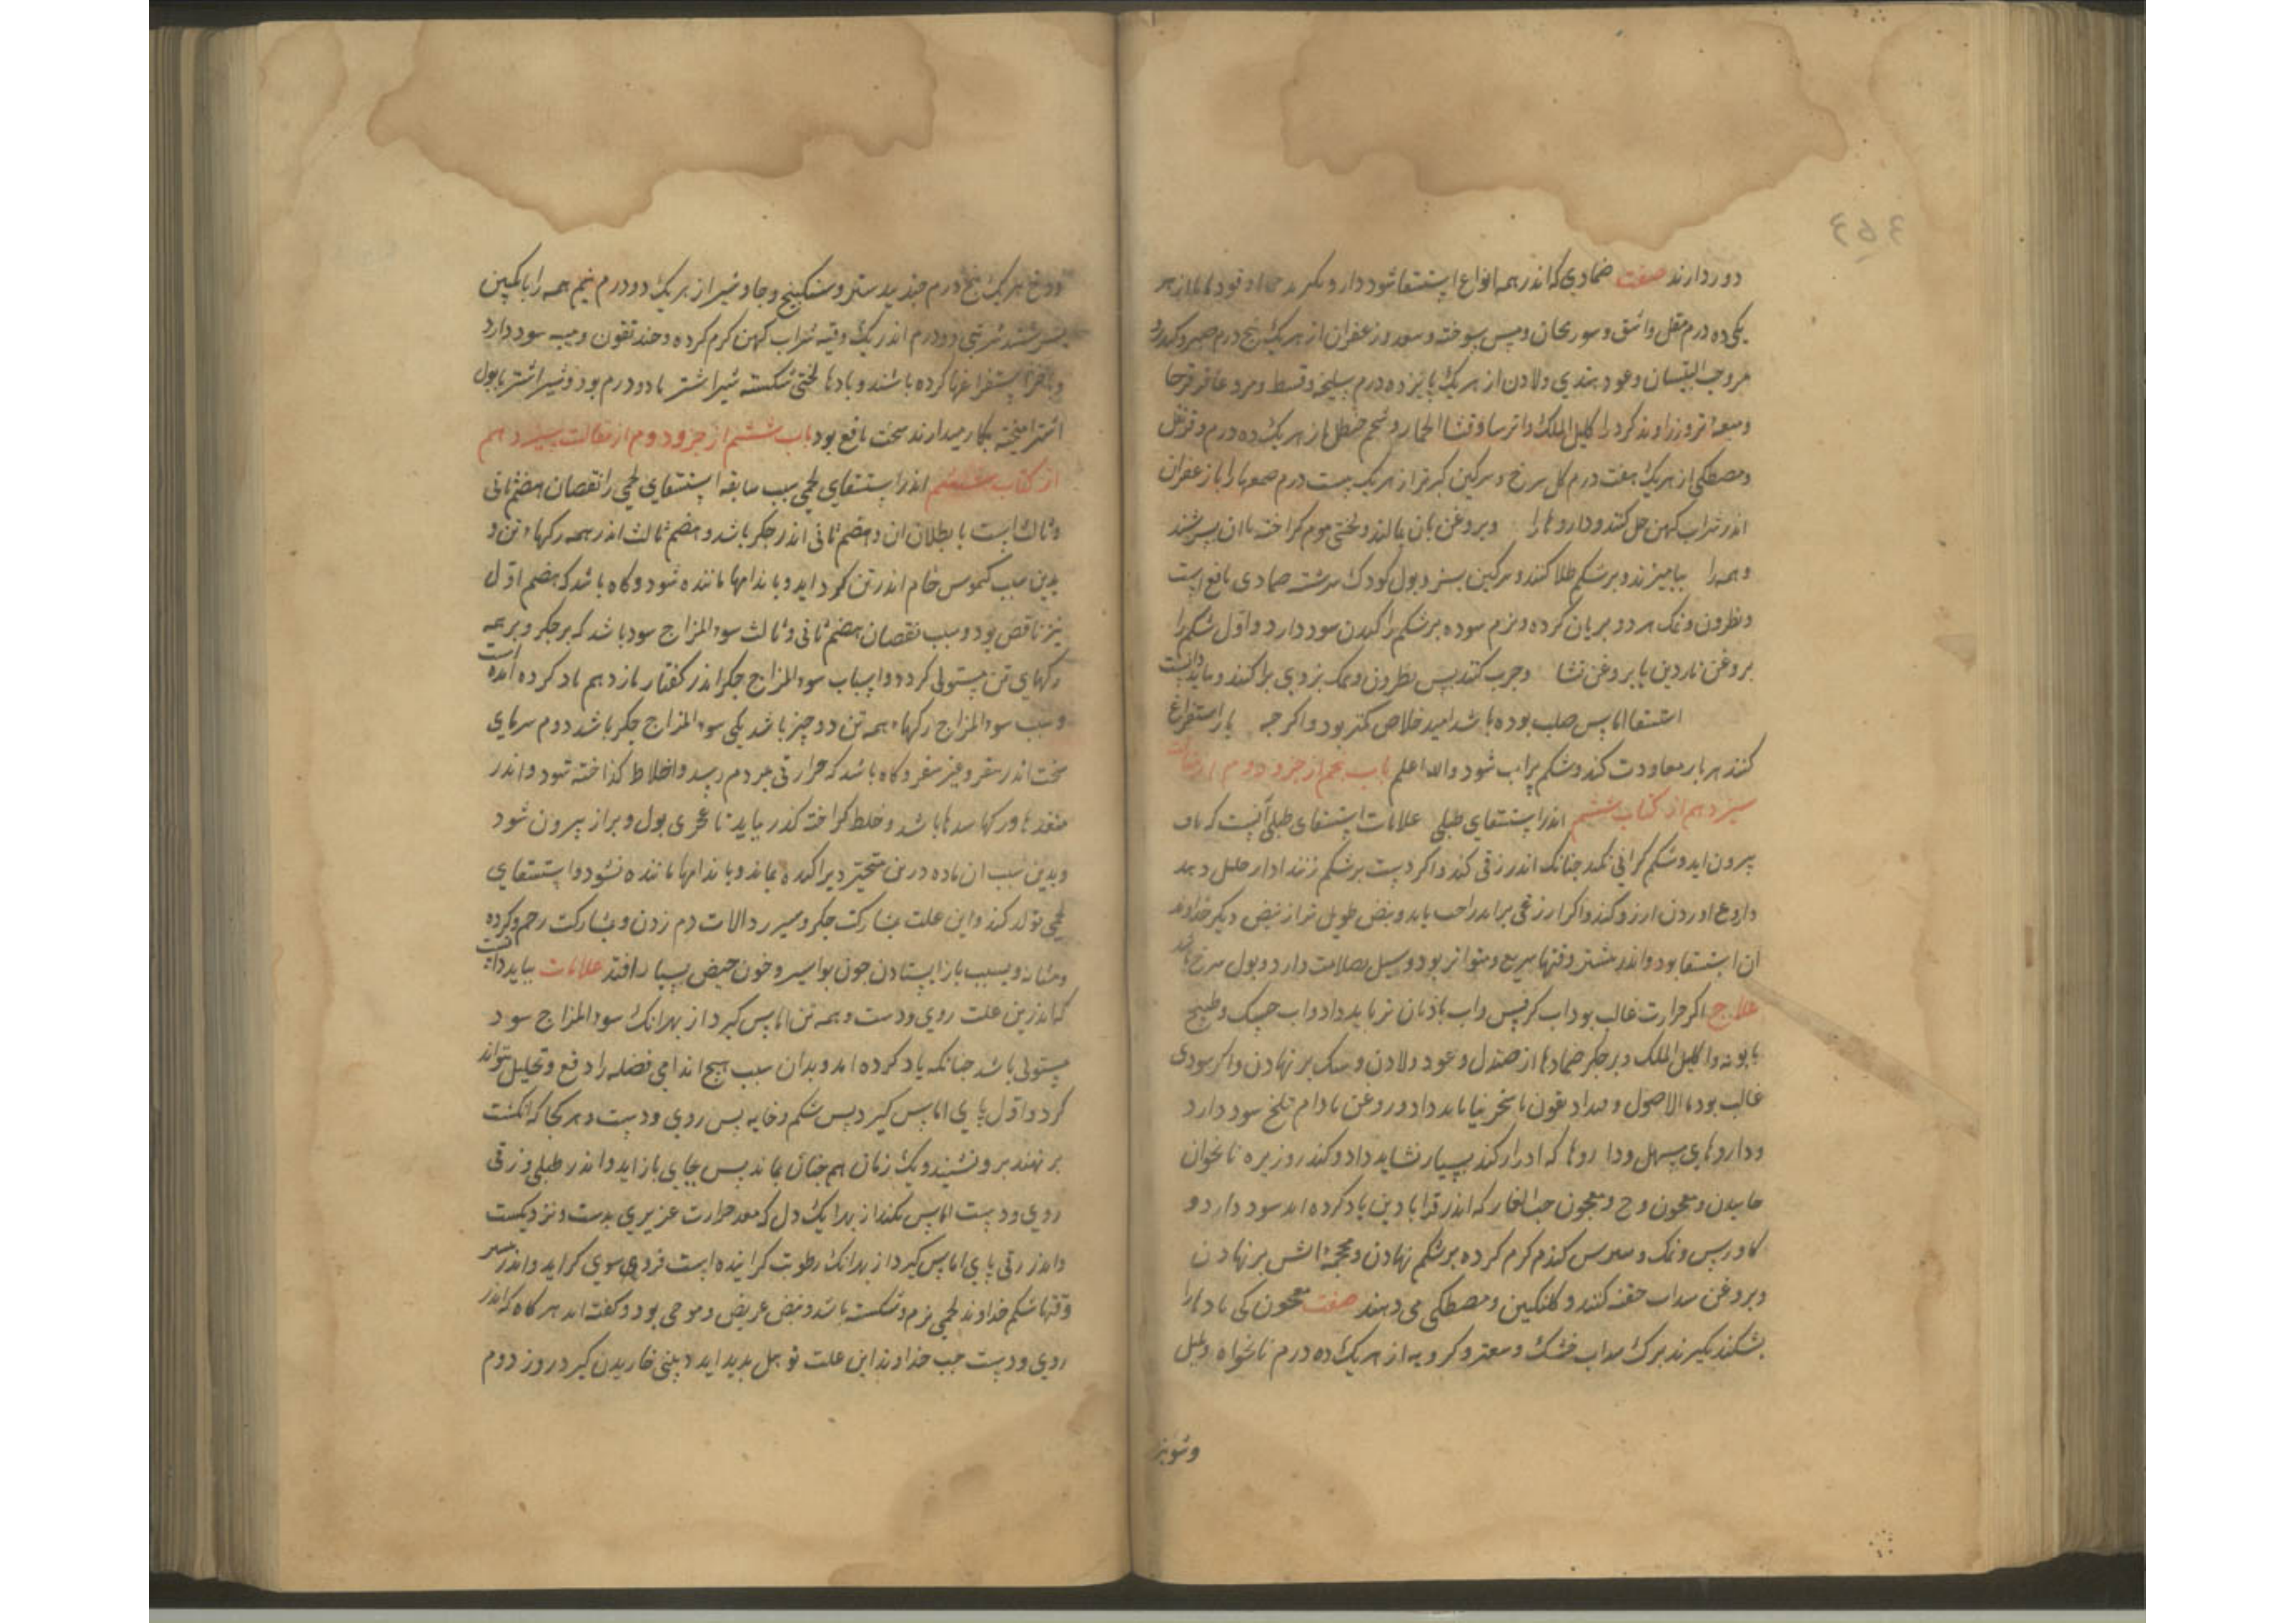 ٤٥٤
دور دارند صفت ضمادی که اندر همه انواع استسقا سود دارد بگیرند
یکی ده درم مقل واشق و سورنجان و پس سوخته و سعد و زعفران از هر یک پنج درم صبر و کندر و
مر و حب البلسان و عود هندی و لادن از هر یک پانزده درم سلیخه و قسط و مر و عاقرقرحا
ومیعه تر و زراوند کرد و اکلیل الملک و قثا الحمار و شحم حنظل از هر یک ده درم و قرنفل
ومصطکی از هر یک هفت درم کل سرخ و سرکین کبوتر از هر یک بیست درم صمغها را با زعفران
اندر شراب کهن حل کنند و داروها را وبروغن بان بمالند و لختی موم کداخته باان بسرشند
وهمه را بیامیزند و بر شکم طلا کنند و سرکین بز و بول کودک سرشته ضمادی نافع است
ونطرون و نمک هر دو بریان کرده و نرم سوده بر شکم پراکندن سود دارد و اول شکم را
بروغن ناردین یا بروغن قثا وجرب کنند پس نطرون و نمک بروی پراکنند و بباید دانست
استسقا اماس صلب بوده باشد امید خلاص کمتر بود واکر چه بار استفراغ
کنند هر بار معاودت کند و شکم پراب شود والله اعلم باب پنجم از جزو دوم از مقالت
سیزدهم از کتاب ششم اندر استسقای طبلی علامات استسقای طبلی آنست که ناف
بیرون اید و شکم کرانی نکند چنانک اندر زقی کند و اکر دست بر شکم زنند اواز طبل دهد
واروغ اوردن ارزو کند و اکر اروغی براید راحت یابد و نبض طویل تر از نبض دیکر خداوندان
ان استسقا بود و اندر بیشتر وقتها سریع و متواتر بود و میل بصلابت دارد و بول سرخ باشد
علاج اکر حرارت غالب بود اب کرفس واب بادیان تر باید داد واب حسک و طبیخ
بابونه و اکلیل الملک و بر جکر ضمادها از صندل و عود و لادن و مشک بر نهادن و اکر سردی
غالب بود ماء الاصول و سنجرنیا باید داد و روغن بادام تلخ سود دارد
وداروهای مسهل و داروها که ادرار کند بسیار نشاید داد و کندر و زیره نانخواه
خاییدن و معجون وج و معجون حب الغار که اندر قرابادین یاد کرده اند سود دارد و
کاورس و نمک و سبوس کندم کرم کرده بر شکم نهادن و محجمه اتش بر نهادن
وبروغن سداب حقنه کنند و کلنکبین و مصطکی می دهند صفت معجون کی بادها را
بشکند بکیرند برک سداب خشک و سعتر و کرویه از هر یک ده درم نانخواه و فلفل
وشونیز
ووج هر یک پنج درم جندبیدستر و سکبینج و جاوشیر از هر یک دو درم نیم همه را بانکبین
بسرشند شربتی دو درم اندر یک وقیه شراب کهن کرم کرده و خندیقون و میبه سود دارد
وباخر استفراغها کرده باشند و بادها لختی شکسته شیر اشتر بادو درم بورد و شیر اشتر با بول
اشتر امیخته بکار میدارند سخت نافع بود باب ششم از جزو دوم از مقالت سیزدهم
از کتاب ششم اندر استسقای لحمی سبب سابقه استسقای لحمی را نقصان هضم ثانی
وثالث است یا بطلان ان و هضم ثانی اندر جکر باشد و هضم ثالث اندر همه رکهاء تن و
بدین سبب کیموس خام اندر تن کرد اید و باندامها ماننده شود و کاه باشد که هضم اول
نیز ناقص بود و سبب نقصان هضم ثانی و ثالث سوء المزاج سرد باشد که بر جکر و بر همه
رکهای تن مستولی کردد و اسباب سوء المزاج جکر اندر کفتار یازدهم یاد کرده امده است
وسبب سوء المزاج رکهاء همه تن دو چیز باشد یکی سوء المزاج جکر باشد دوم سرمای
سخت اندر سفر و غیر سفر و کاه باشد که حرارتی بمردم رسد و اخلاط کداخته شود و اندر
منفذها و رکها سدها باشد و خلط کداخته کذر نیابد تا بمجری بول و براز بیرون شود
وبدین سبب ان ماده در تن متحیر و پراکنده بماند و باندامها ماننده نشود و استسقای
لحمی تولد کند و این علت بمشارکت جکر و سپرز و الات دم زدن و بمشارکت رحم و کرده
ومثانه و بسبب باز ایستادن خون بواسیر و خون حیض بسیار افتد علامات بباید دانست
که اندرین علت روی و دست و همه تن اماس کیرد از بهر انک سوء المزاج سرد
مستولی باشد چنانکه یاد کرده اند و بدان سبب هیچ اندامی فضله را دفع و تحلیل نتواند
کرد و اول پای اماس کیرد پس شکم و خایه پس روی و دست و هر کجا که انکشت
بر نهند فرو نشیند و یک زمان هم چنان بماند پس بجای باز اید و اندر طبلی و زقی
روی و دست اماس نکند از بهر انک دل که معدن حرارت غریزی بدست و نزدیکست
واندر زقی پای اماس کیرد از بهر انک رطوبت کراینده است فرود سوی کراید و اندر بیشتر
وقتها شکم خداوند لحمی نرم و شکسته باشد و نبض عریض و موجی بود و کفته اند هر کاه که اندر
روی و دست چپ خداوند این علت تو بهل پدید اید و بینی خاریدن کیرد روز دوم